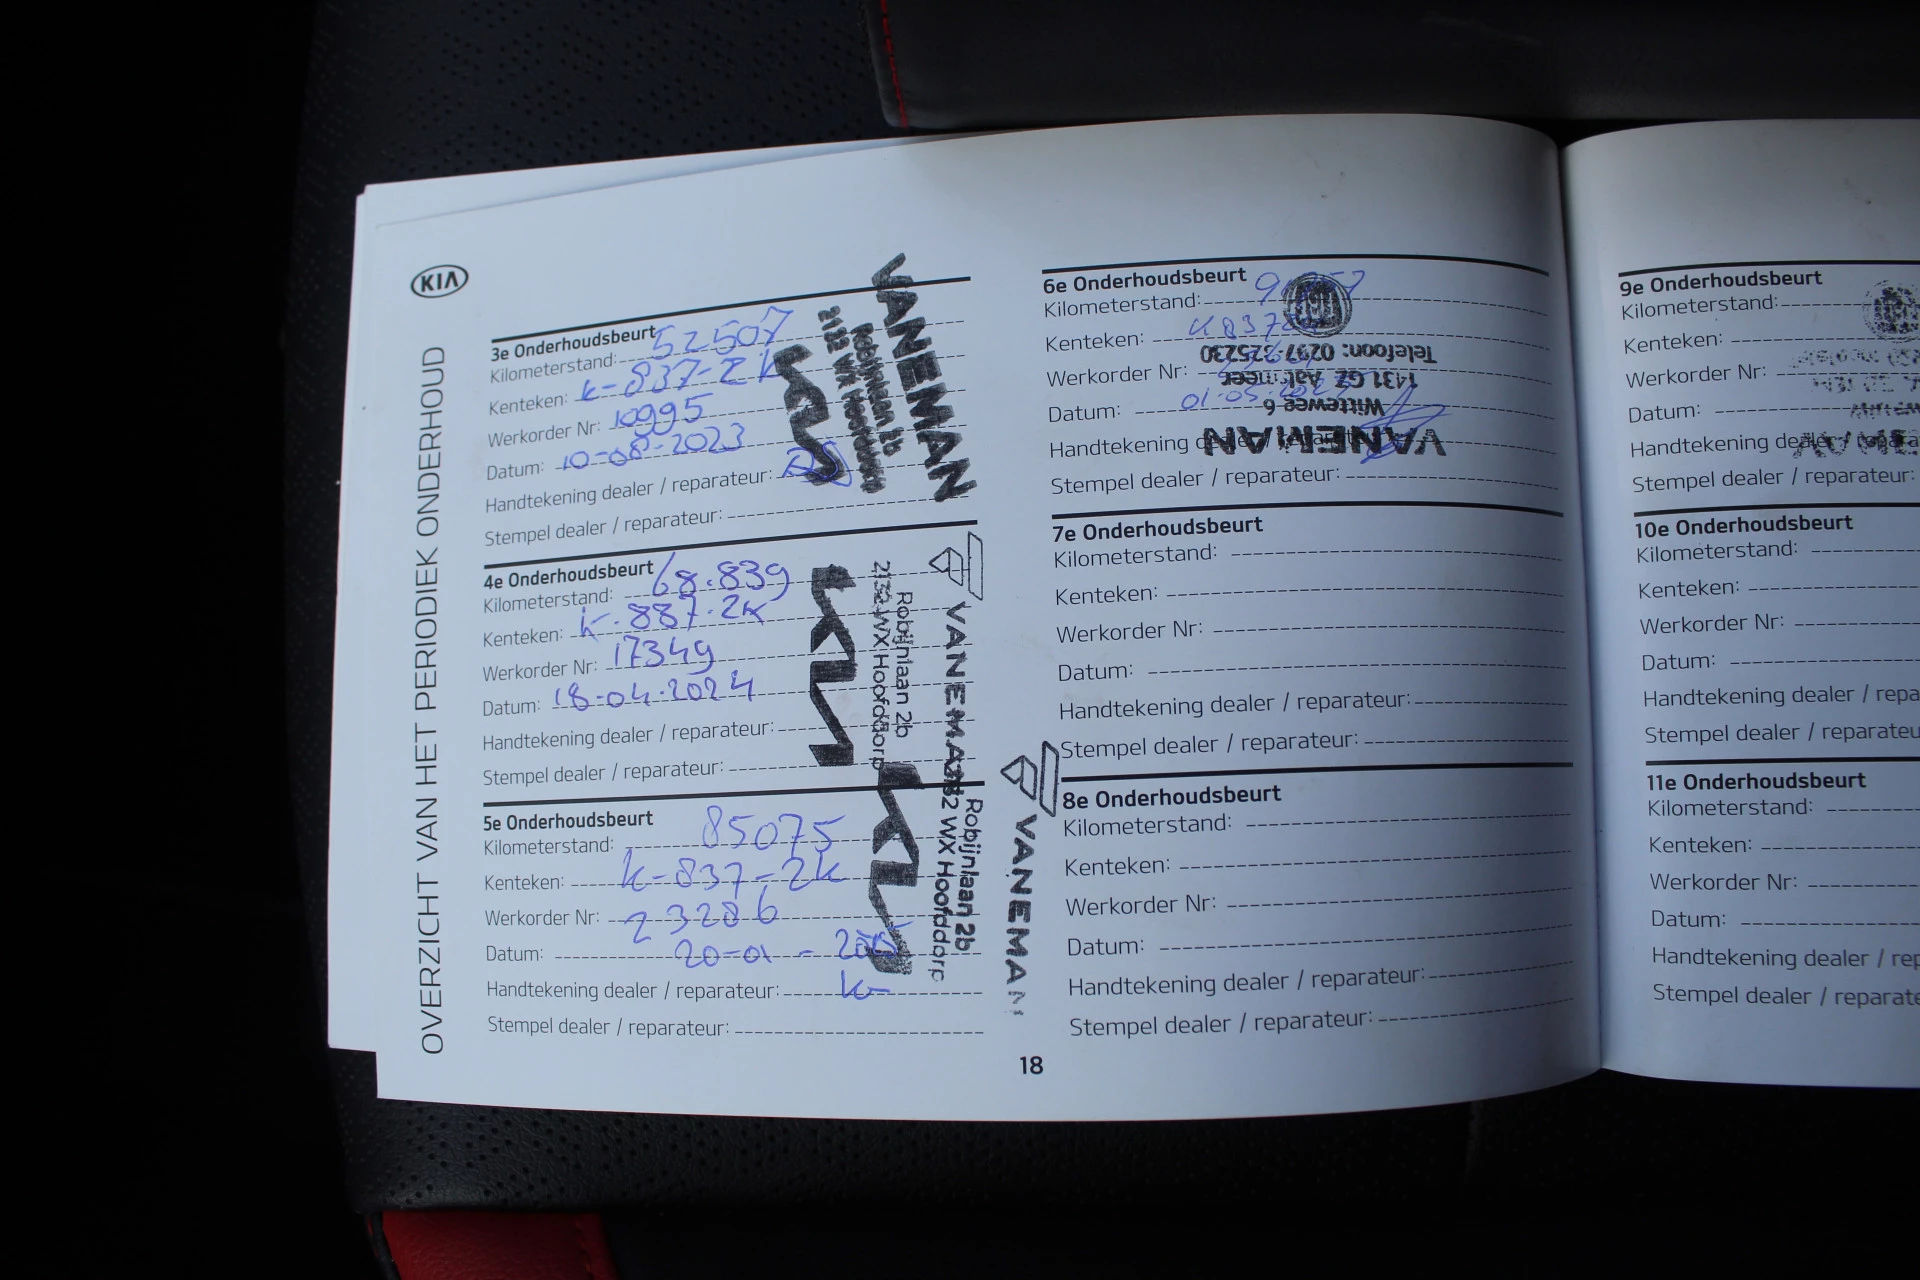 KIA
OVERZICHT VAN HET PERIODIEK ONDERHOUD
3e Onderhoudsbeurt
Kilometerstand: 52507
Kenteken: K-837-2K
Werkorder Nr: 10995
Datum: 10-08-2023
Handtekening dealer / reparateur:
Stempel dealer / reparateur:
VANEMAN
Robijnlaan 2b
2132 WX Hoofddorp
KIA
4e Onderhoudsbeurt
Kilometerstand: 68.839
Kenteken: K-887-2K
Werkorder Nr: 17349
Datum: 18-04-2024
Handtekening dealer / reparateur:
Stempel dealer / reparateur:
VANEMAN
Robijnlaan 2b
2132 WX Hoofddorp
KIA
5e Onderhoudsbeurt
Kilometerstand: 85075
Kenteken: K-837-2K
Werkorder Nr: 23286
Datum: 20-01-
Handtekening dealer / reparateur:
Stempel dealer / reparateur:
VANEMAN
Robijnlaan 2b
2132 WX Hoofddorp
KIA
6e Onderhoudsbeurt
Kilometerstand:
Kenteken:
Werkorder Nr:
Datum: 01-05-
Handtekening dealer / reparateur:
Stempel dealer / reparateur:
VANEMAN
Witteweg 6
1431 GZ Aalsmeer
Telefoon: 0297-325230
7e Onderhoudsbeurt
Kilometerstand:
Kenteken:
Werkorder Nr:
Datum:
Handtekening dealer / reparateur:
Stempel dealer / reparateur:
8e Onderhoudsbeurt
Kilometerstand:
Kenteken:
Werkorder Nr:
Datum:
Handtekening dealer / reparateur:
Stempel dealer / reparateur:
18
9e Onderhoudsbeurt
Kilometerstand:
Kenteken:
Werkorder Nr:
Datum:
Handtekening dealer / repara
Stempel dealer / reparateur:
10e Onderhoudsbeurt
Kilometerstand:
Kenteken:
Werkorder Nr:
Datum:
Handtekening dealer / repa
Stempel dealer / reparateu
11e Onderhoudsbeurt
Kilometerstand:
Kenteken:
Werkorder Nr:
Datum:
Handtekening dealer / rep
Stempel dealer / reparate